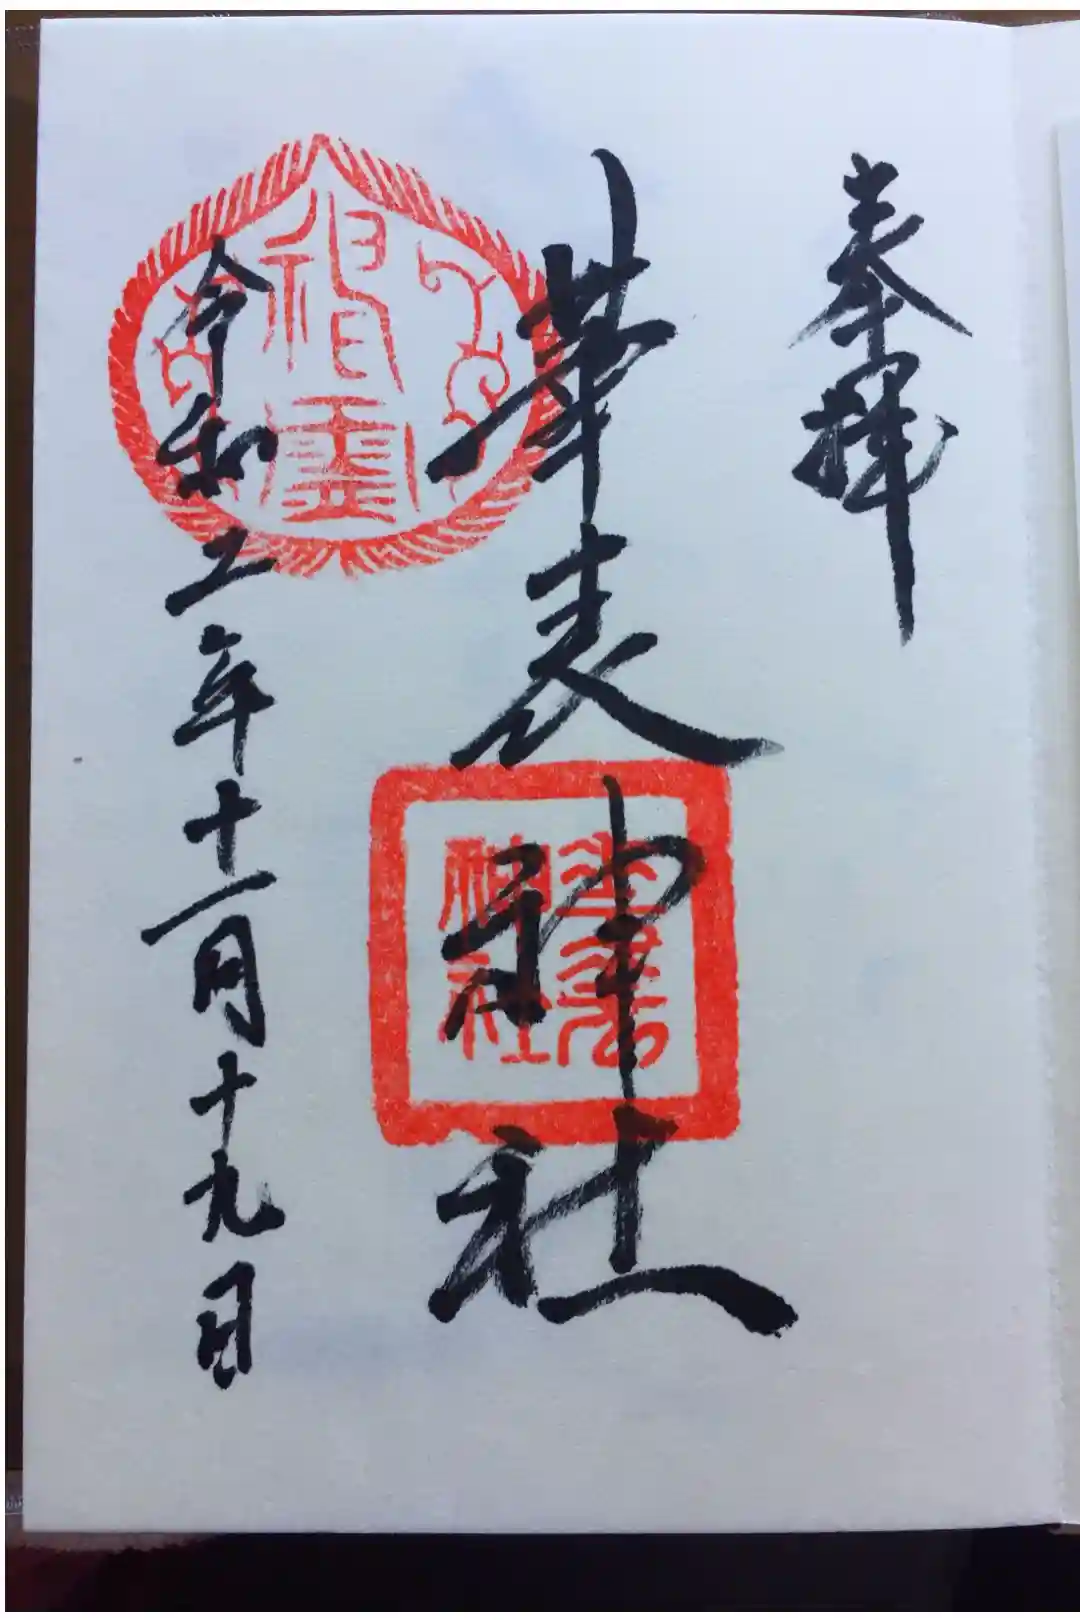 奉拝
華表神社
令和二年十一月十九日
華表
神社